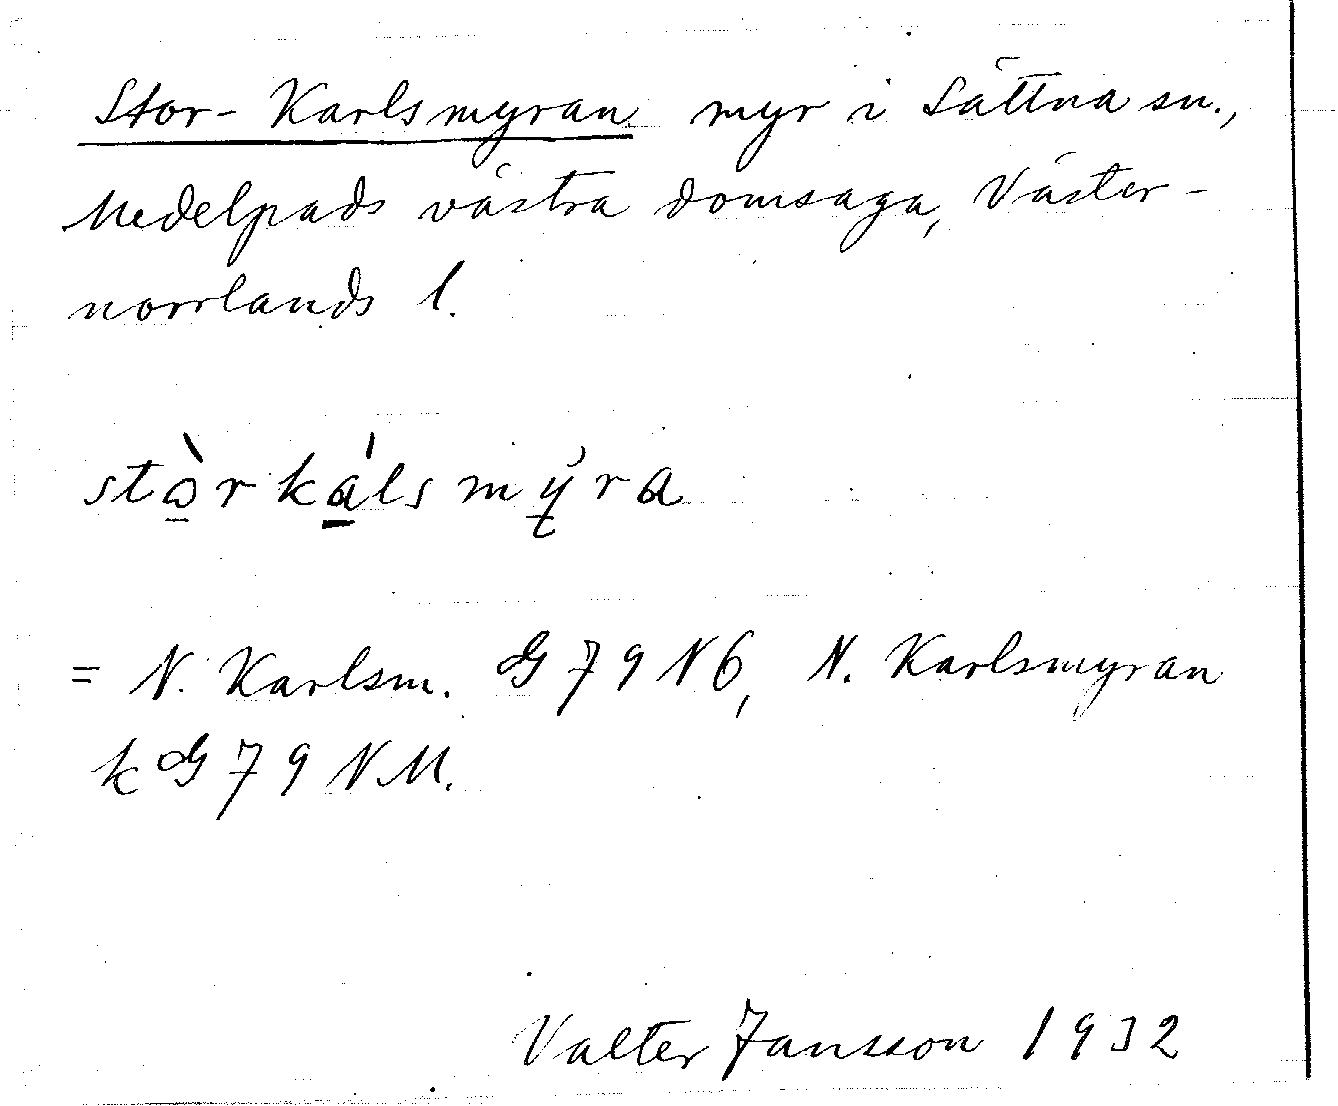 Stor-Karlsmyran myr i Sättna sn.,
Medelpads västra domsaga, Väster-
norrlands l.
stò̱rká̱lsmy̱̆ra
= N. Karlsm. G 79 N6, N. Karlsmyran
kG 79 NM.
Valter Jansson 1932